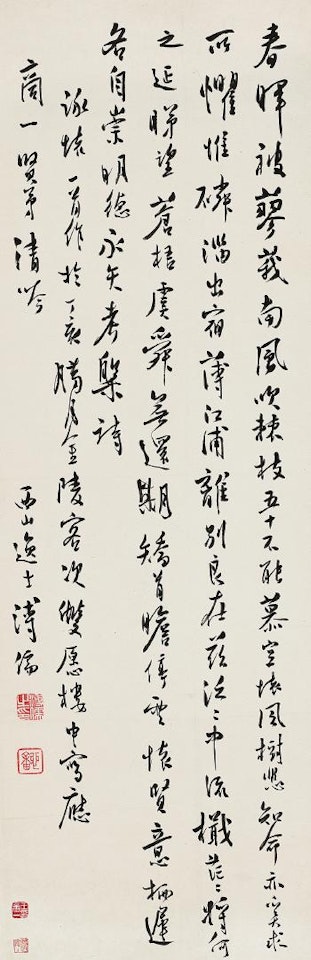 春暉被蓼莪南風吹棘枝五十不能慕空懷風樹悲知命亦奚求
所懼惟磷淄出宿薄江浦離別良在茲泛々中流檝茫々將何
之延睇望蒼梧虞舜無還期矯首瞻停雲懷賢意栖遲
各自崇明德永矢考槃詩
詠懷一首作於丁亥臘月金陵客次雙愿樓中寫應
商一賢弟清吟
西山逸士溥儒